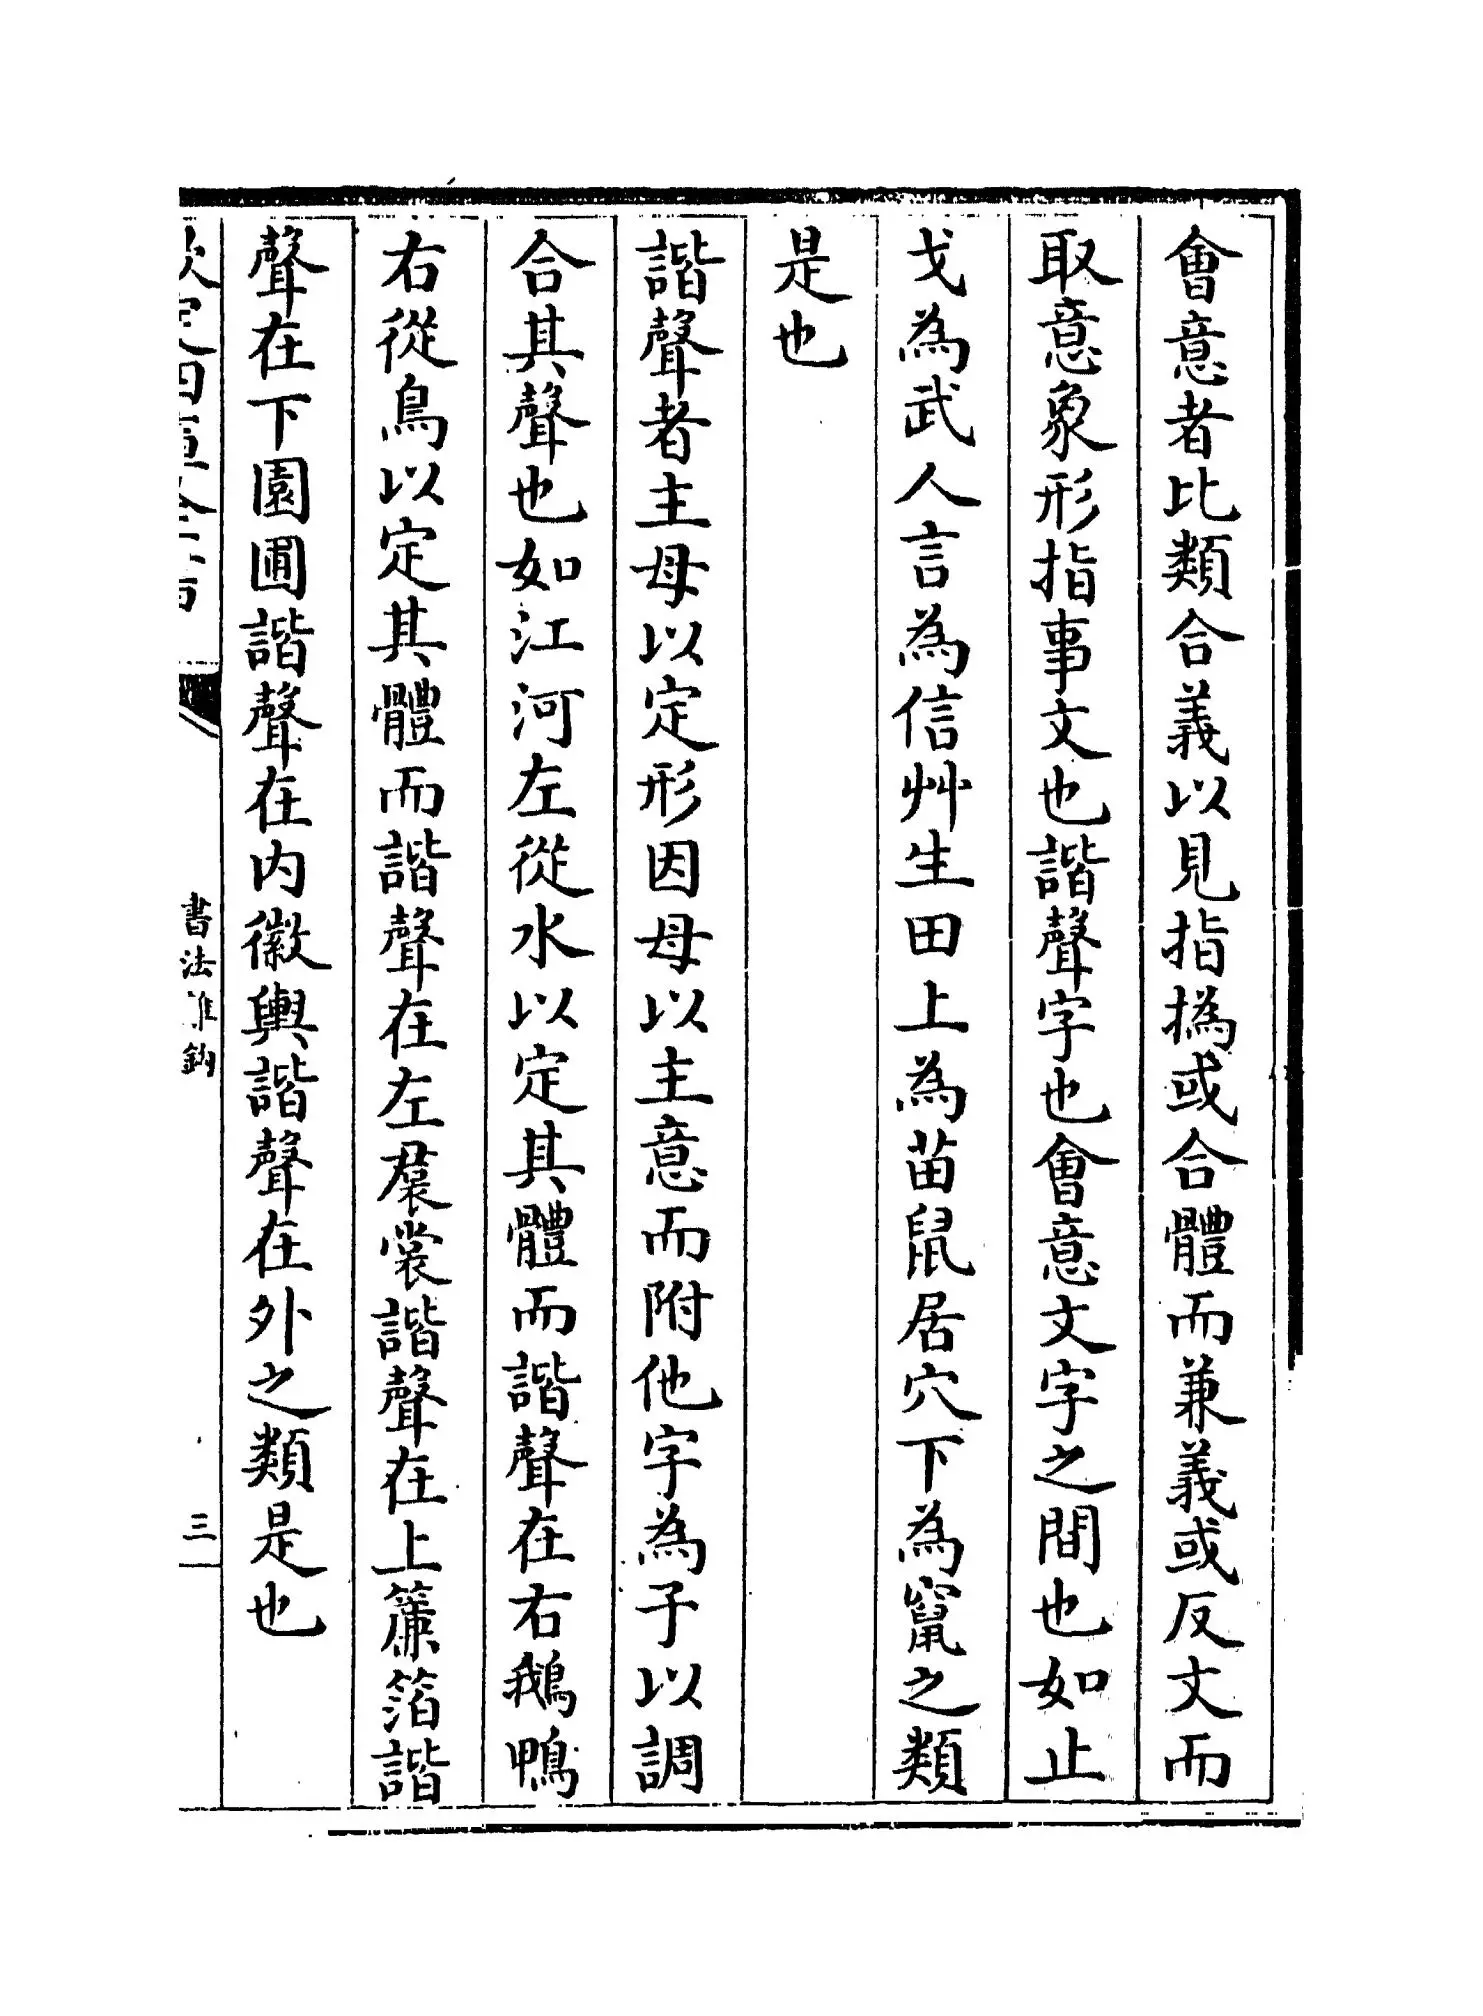 會意者比類合義以見指撝或合體而兼義或反文而
取意象形指事文也諧聲字也會意文字之間也如止
戈為武人言為信艸生田上為苗鼠居穴下為竄之類
是也
諧聲者主母以定形因母以主意而附他字為子以調
合其聲也如江河左從水以定其體而諧聲在右鵝鴨
右從鳥以定其體而諧聲在左裠裳諧聲在上簾箔諧
聲在下園圃諧聲在内徽輿諧聲在外之類是也
欽定四庫全書
書法離鉤
三